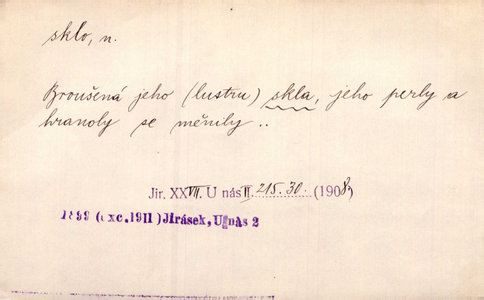 sklo, n.
Broušená jeho (lustru) skla, jeho perly a
hranoly se měnily ..
Jir. XXVII. U nás II. 215. 30. (1908)
1899 (exc.1911) Jirásek, U nás 2